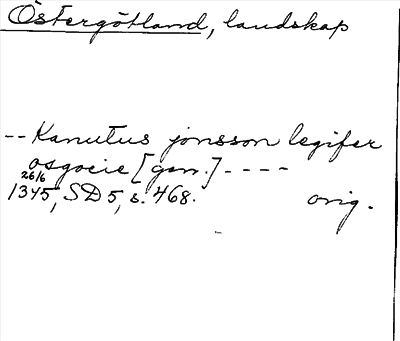 Östergötland, landskap
-- Kanutus jonsson legifer
osgocie [gen.] ----
26/6
1345, SD 5, s. 468. orig.